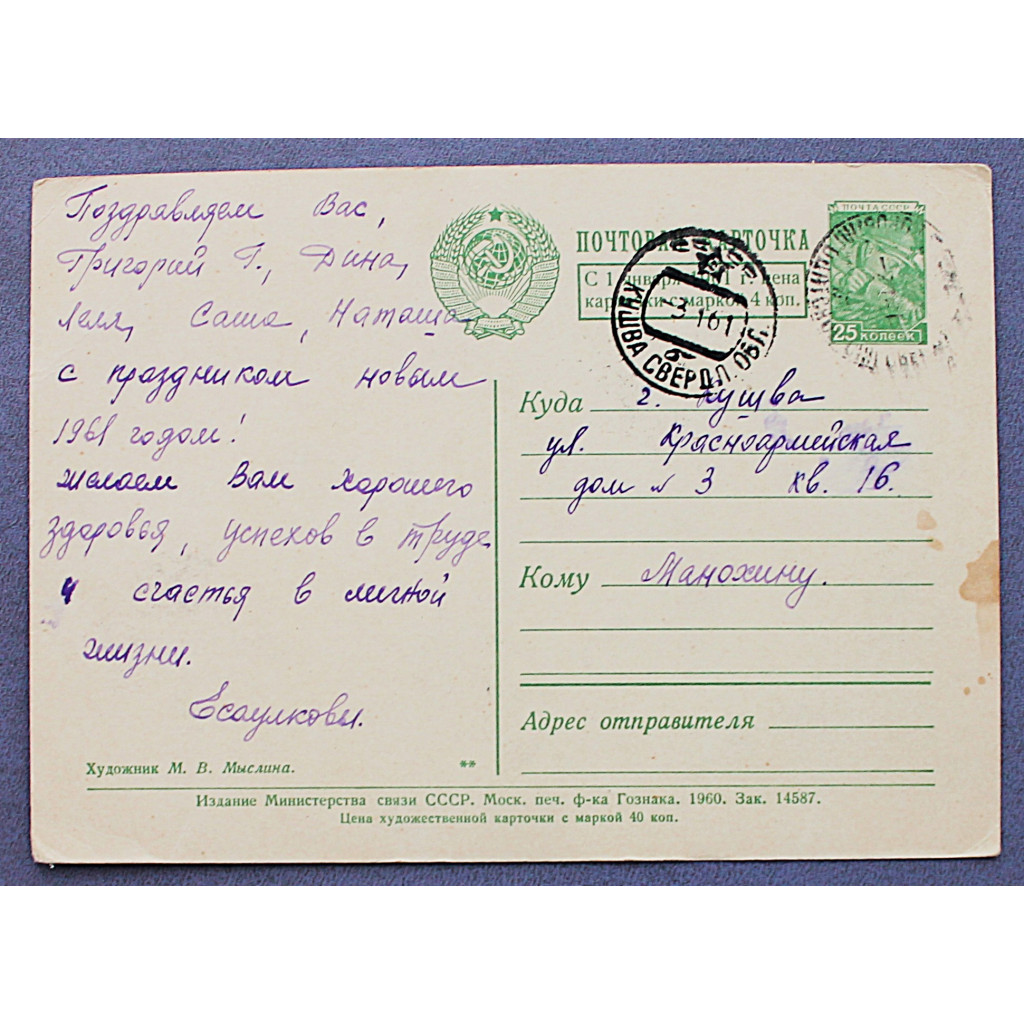 Поздравляем Вас,
Григорий Г., Дина,
Леля, Саша, Наташа
с праздником новым
1961 годом!
желаем Вам хорошего
здоровья, успехов в труде
и счастья в личной
жизни.
Есаулковы.
Художник М. В. Мыслина.
**
ПОЧТОВАЯ КАРТОЧКА
С 1 января 1961 г. цена
карточки с маркой 4 коп.
КУШВА СВЕРДЛ. ОБЛ.
-3 1 61
б
ПОЧТА СССР
25 КОПЕЕК
Куда г. Кушва
ул. Красноармейская
дом № 3 кв. 16.
Кому Манохину.
Адрес отправителя
Издание Министерства связи СССР. Моск. печ. ф-ка Гознака. 1960. Зак. 14587.
Цена художественной карточки с маркой 40 коп.